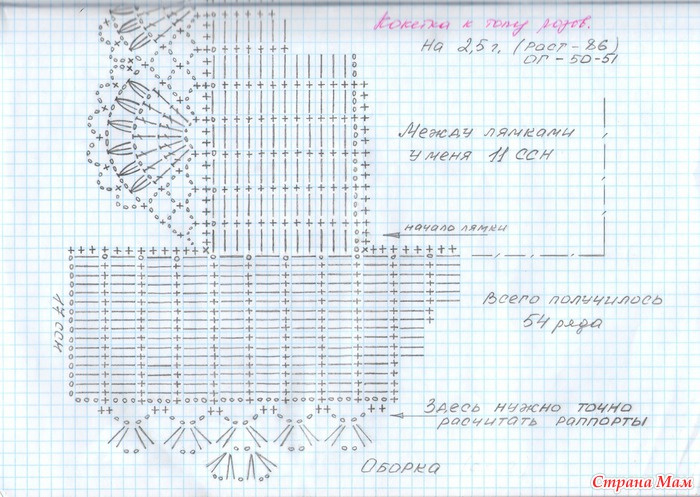 Кокетка к топу розов.
На 2,5 г. (рост - 86)
ОГ - 50-51
Между лямками
у меня 11 ССН
начало лямки
Всего получилось
54 ряда
17 ССН
Здесь нужно точно
расчитать раппорты
Оборка
Страна Мам